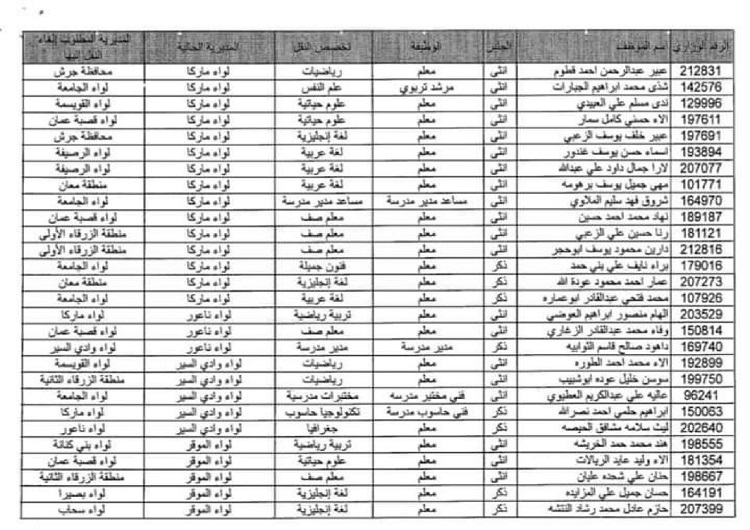 الرقم الوزاري اسم الموظف الجنس الوظيفة تخصص النقل المديرية الحالية المديرية المطلوب إلغاء النقل إليها
212831 عبير عبدالرحمن احمد قطوم انثى معلم رياضيات لواء ماركا محافظة جرش
142576 شذى محمد ابراهيم الجبارات انثى مرشد تربوي علم النفس لواء ماركا لواء الجامعة
129996 ندى مسلم علي العبيدي انثى معلم علوم حياتية لواء ماركا لواء القويسمة
197611 الاء حسني كامل سمار انثى معلم علوم حياتية لواء ماركا لواء قصبة عمان
197691 عبير خلف يوسف الزعبي انثى معلم لغة إنجليزية لواء ماركا محافظة جرش
193894 اسماء حسن يوسف غندور انثى معلم لغة عربية لواء ماركا لواء الرصيفة
207077 لارا جمال داود علي عبدالله انثى معلم لغة عربية لواء ماركا لواء الرصيفة
101771 مهى جميل يوسف برهومه انثى معلم لغة عربية لواء ماركا منطقة معان
164970 شروق فهد سليم الملاوي انثى مساعد مدير مدرسة مساعد مدير مدرسة لواء ماركا لواء الجامعة
189187 نهاد محمد احمد حسين انثى معلم معلم صف لواء ماركا لواء قصبة عمان
181121 رنا حسين علي الزعبي انثى معلم معلم صف لواء ماركا منطقة الزرقاء الأولى
212816 دارين محمود يوسف ابوحجر انثى معلم معلم صف لواء ماركا منطقة الزرقاء الأولى
179016 براء نايف علي بني حمد ذكر معلم فنون جميلة لواء ماركا لواء الجامعة
207273 عمار احمد محمود عودة الله ذكر معلم لغة إنجليزية لواء ماركا منطقة معان
107926 محمد فتحي عبدالقادر ابوعماره ذكر معلم لغة عربية لواء ماركا لواء الجامعة
203529 الهام منصور ابراهيم العوضي انثى معلم تربية رياضية لواء ناعور لواء ماركا
150814 وفاء محمد عبدالقادر الزغاري انثى معلم معلم صف لواء ناعور لواء قصبة عمان
169740 داهود صالح قاسم الثوابيه ذكر مدير مدرسة مدير مدرسة لواء ناعور لواء وادي السير
192899 الاء محمد احمد الطوره انثى معلم رياضيات لواء وادي السير لواء القويسمة
199750 سوسن خليل عوده ابوشبيب انثى معلم رياضيات لواء وادي السير منطقة الزرقاء الثانية
96241 عاليه علي عبدالكريم العطيوي انثى فني مختبر مدرسه مختبرات مدرسية لواء وادي السير لواء الجامعة
150063 ابراهيم حلمي احمد نصرالله ذكر فني حاسوب مدرسة تكنولوجيا حاسوب لواء وادي السير لواء ماركا
202640 ليث سلامه مشافق الحيصه ذكر معلم جغرافيا لواء وادي السير لواء ناعور
198555 هند محمد حمد الخريشه انثى معلم تربية رياضية لواء الموقر لواء بني كنانة
181354 الاء وليد عايد الربالات انثى معلم علوم حياتية لواء الموقر لواء قصبة عمان
198667 حنان علي شحده عليان انثى معلم معلم صف لواء الموقر منطقة الزرقاء الثانية
164191 حسان جميل علي المزايده ذكر معلم لغة إنجليزية لواء الموقر لواء بصيرا
207399 حازم عادل محمد رشاد النتشه ذكر معلم لغة إنجليزية لواء الموقر لواء سحاب